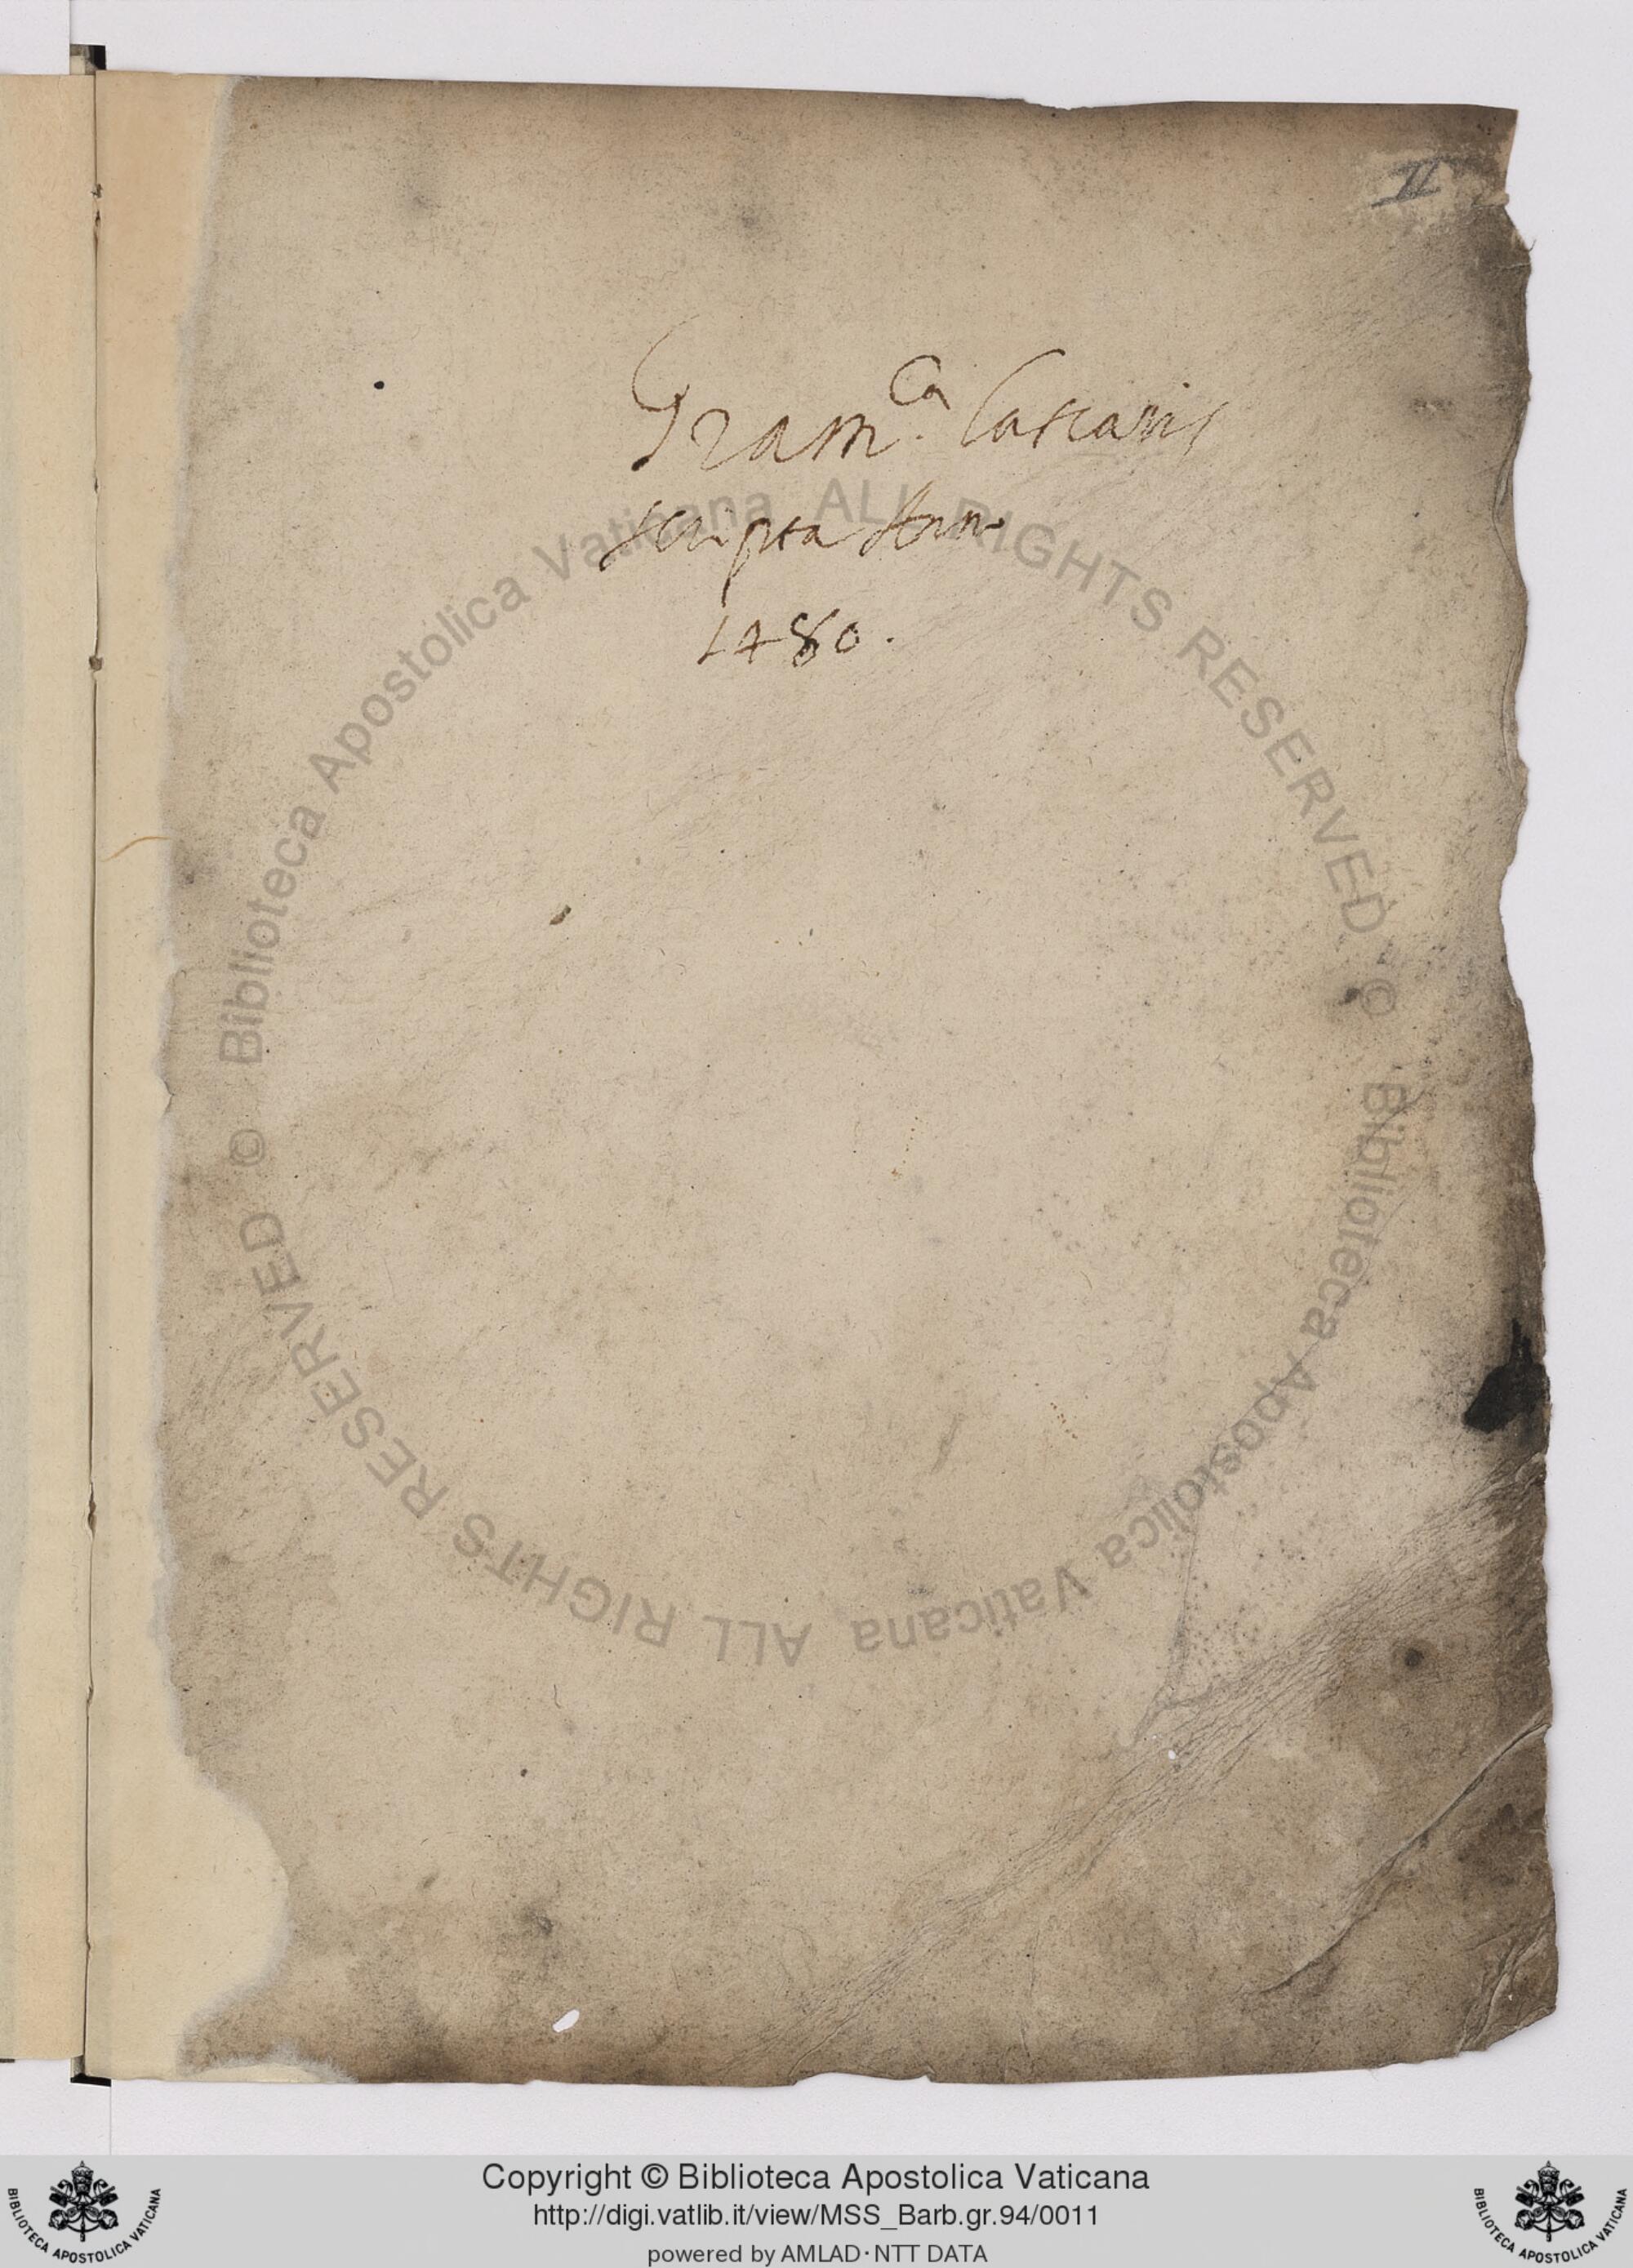 II
Gram.ca Lascaris
scripta Anno
1480.
© Biblioteca Apostolica Vaticana ALL RIGHTS RESERVED
© Biblioteca Apostolica Vaticana ALL RIGHTS RESERVED
Copyright © Biblioteca Apostolica Vaticana
http://digi.vatlib.it/view/MSS_Barb.gr.94/0011
powered by AMLAD·NTT DATA
BIBLIOTECA APOSTOLICA VATICANA
BIBLIOTECA APOSTOLICA VATICANA